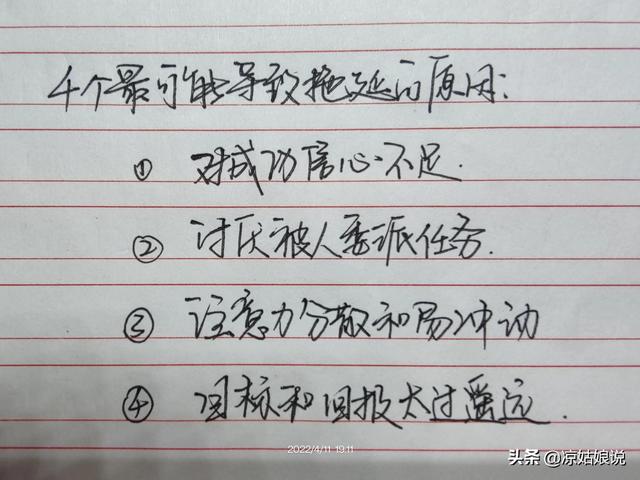 4个最可能导致拖延的原因:
① 对成功信心不足.
② 讨厌被人委派任务.
③ 注意力分散和易冲动
④ 目标和回报太过遥远.
2022/4/11 19:11
头条 @凉姑娘说